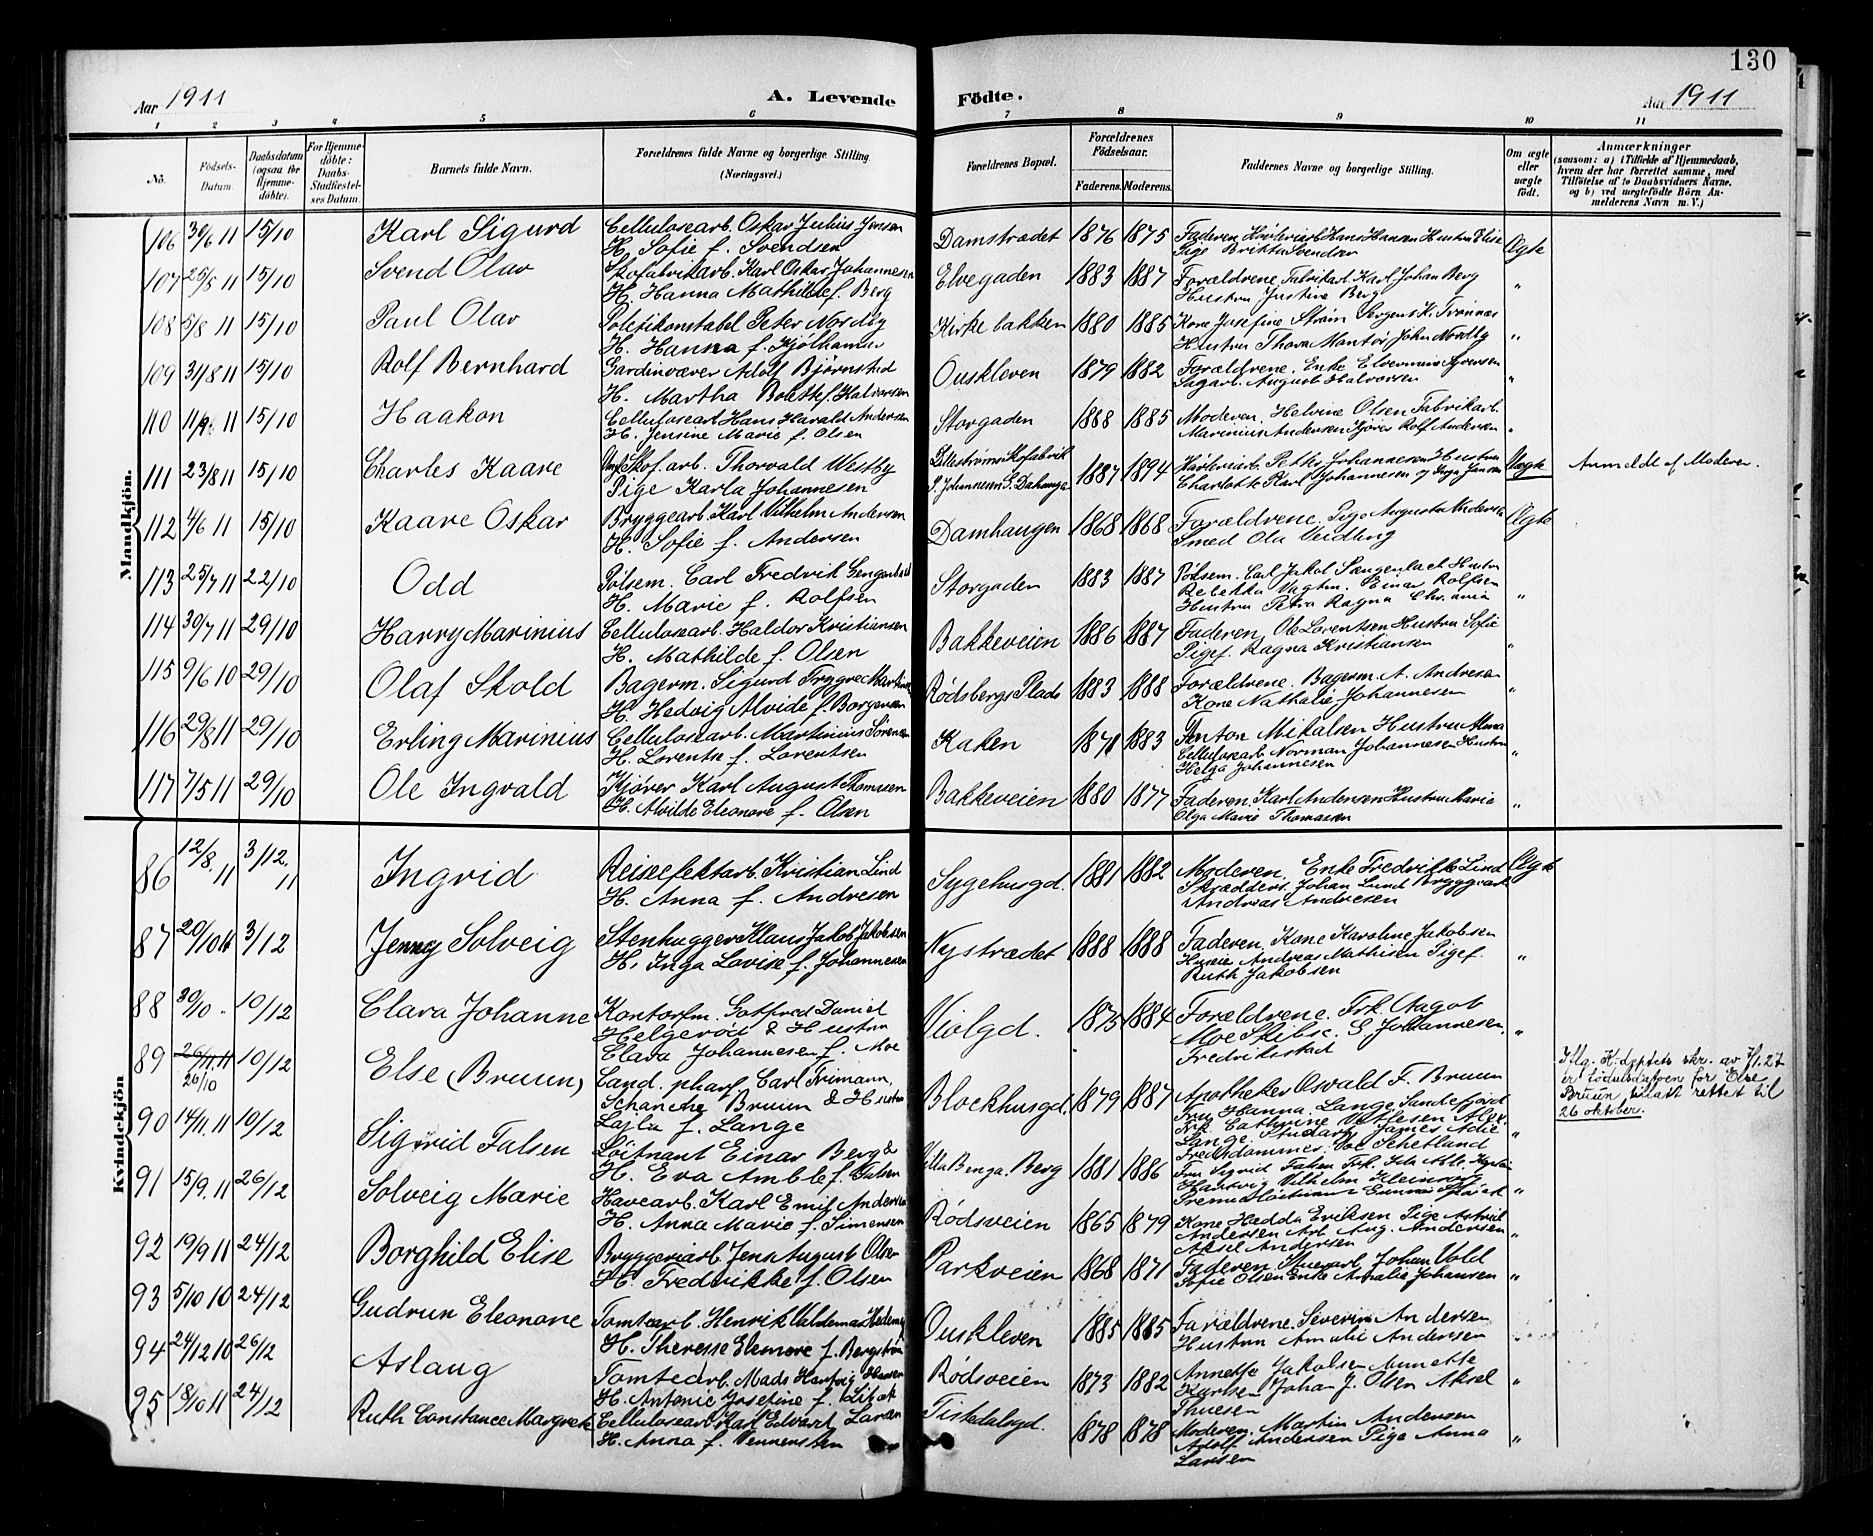 130
Aar 1911
A. Levende
Födte.
Aar 1911
1 2 3 4 5 6 7 8 9 10 11
No.
Födsels-Datum.
Daabsdatum (ogsaa for Hjemme-döbte).
For Hjemme-döbte: Daabs-Stadfæstelses Datum.
Barnets fulde Navn.
Forældrenes fulde Navne og borgerlige Stilling. (Næringsvei.)
Forældrenes Bopæl.
Forældrenes Födselsaar.
Faderens. Moderens.
Faddernes Navne og borgerlige Stilling.
Om ægte eller uægte født.
Anmærkninger
(saasom: a) i Tilfælde af Hjemmedaab, hvem der har forrettet samme, med Tilføielse af to Daabsvidners Navne. og b) ved uegtefödte Börn Anmelderens Navn m. V.)
Mandkjön.
106 30/6 11 15/10 Karl Sigurd Cellulosearb. Oskar Julius Jensen Damstrædet 1876 1875 Faderen Høvleriarb Hans Hansen Hustru Elise Ægte
H. Sofie f. Svendsen Pige Brikta Svendsen
107 25/5 11 15/10 Svend Olav Skofabrikarb. Karl Oskar Johannesen Elvegaden 1883 1887 Forældrene Fabrikarb Karl Johan Berg "
H. Hanna Mathilde f. Berg Hustru Justine Berg
108 5/8 11 15/10 Paul Olav Politikonstabel Peter Nordby Kirkebakken 1880 1885 Kone Josefine Strøm Sergent K. Trønnes "
H. Hanna f. Kjølhamar Hustru Thora Mantor John Nordby
109 31/8 11 15/10 Rolf Bernhard Gardinvæver Adolf Bjørnstad Ouskleven 1879 1882 Forældrene. Enke Elvermine Syversen "
H. Martha Bolette f. Halvorsen Sagarb. August Halvorsen
110 11/9 11 15/10 Haakon Cellulosearb Hans Harald Andersen Storgaden 1888 1885 Moderen. Helvine Olsen Fabrikarb. "
H. Jensine Marie f. Olsen Marinius Andersen Kjører Rolf Andersen
111 23/8 11 15/10 Charles Kaare Skof. arb. Thorvald Westby Lillestrøms Skofabrik 1887 1894 Høvleriarb. Petter Johannesen Hustru Uægte Anmeldt af Moderen.
Pige Karla Johannesen Charlotte Karl Johannesen og Inga Jansen
112 4/6 11 15/10 Kaare Oskar Bryggearb. Karl Vilhelm Andersen Damhaugen 1868 1868 Forældrene. Pige Augusta Andersen Ægte
H. Sofie f. Andersen Smed Ola Veidling
113 25/7 11 22/10 Odd Pølsem. Carl Fredrik Gengenbach Storgaden 1883 1887 Pølsem. Carl Jakob Hustru
H. Marie f. Rolfsen Rebekka Vagtm. Einar Rolfsen "
Hustru Petra Ragna Chr.ania
114 30/7 11 29/10 Harry Marinius Cellulosearb. Haldor Kristiansen Bakkeveien 1886 1887 Faderen, Ole Lorentsen Hustru Sofie "
H. Mathilde f. Olsen Pigef. Ragna Kristiansen
115 9/6 10 29/10 Olaf Skold Bagerm. Sigurd Trygve Martinsen Rødsbergs Plads 1883 1888 Forældrene. Bagerm. A. Andresen "
H. Hedvig Alvide f. Borgersen Kone Nathalie Johannesen
116 29/8 11 29/10 Erling Marinius Cellulosearb. Martinius Sørensen Kaken 1871 1883 Anton Mikalsen Hustru Alma
H. Lorentse f. Lorentsen Cellulosearb Norman Johannesen Hustru "
Helga Johannesen
117 7/5 11 29/10 Ole Ingvald Kjører Karl August Thomasen Bakkeveien 1880 1877 Faderen. Karl Andersen Hustru Marie "
H. Alvilde Eleonore f. Olsen Olga Marie Thomasen
Kvindekjön
86 12/8. 11 3/12. 11 Ingrid Reiseefektarb Kristian Lind Sygehusgd. 1881 1882 Moderen. Enke Fredrikke Lind Ægte
H. Anna f. Andresen Skrædders. Johan Lund Bryggearb
Andreas Andresen
87 29/10 11 3/12 Jenny Solveig Stenhugger Klaus Jakob Jakobsen Nystrædet 1888 1888 Faderen, Kone Karoline Jakobsen
H. Inga Lovise f. Johannesen Huseier Andreas Mathisen Pigef. "
Ruth Jakobsen
88 30/10 . 10/12 Clara Johanne Kontorfm. Gotfred Daniel Violgd. 1873 1884 Forældrene. Frk. Aagot
Helgerød & Hustru Moe Skibsc. G. Johannesen. "
Clara Johannesen f. Moe Fredrikstad
89 26/11 11 26/10 10/12 Else (Bruun) Cand. pharf. Carl Frimann, Blockhusgd. 1879 1887 Apotheker Oswald F. Bruun Iflg. K. deptets skr. av 7/1.27
Schanche Bruun & Hustru Fru Hanna Lange Sandefjord er fødselsdatoen for Else
Lajla f. Lange Frk. Cathrine Alex. Bruun tillatt rettet til
Lange. Studart James Adie " 26 oktober.
90 14/11. 11 10/12 Sigrid Falsen Løitnant Einar Berg & Villa Benga. Berg 1881 1886 Fredsdommer. Voe Schetland
H. Eva Amble f. Falsen Fru Sigrid Falsen Frk.
Hartvig Vilhelm "
91 15/9. 11 26/12 Solveig Marie Havearb. Karl Emil Andersen Rødsveien 1865 1879 Kone Hedda Eriksen Pige Astrid
H. Anna Marie f. Simensen Andersen Arb Aug. Andersen "
Aksel Andersen
92 19/9 11 24/12 Borghild Elise Bryggeriarb. Jens August Olsen Parkveien 1868 1871 Faderen Stuerarb. Johan Vold
H. Fredrikke f. Olsen Sofie Olsen Enke Amalia Johansen "
93 5/10 10 24/12 Gudrun Eleonore Tomtearb. Henrik Valdemar Hedeng Ouskleven 1885 1885 Forældrene. Severin Andersen
H. Therese Elenore f. Bergstrøm Hustru Amalie Andersen
94 24/12 10 26/12 Aslaug Tomtearb. Mads Hartvig Hansen Rødsveien 1873 1882 Annette Jakobsen Annette
H. Antonie Josefine f. Karlsen Johan J. Olsen Aksel "
Thuesen
95 18/10 11 24/12 Ruth Constance Margrete Cellulosearb. Karl Edvart Larsen Tistedalsgd. 1878 1878 Moderen. Martin Andersen
H. Anna f. Vennersten Adolf Andersen Pige Anna "
Larsen